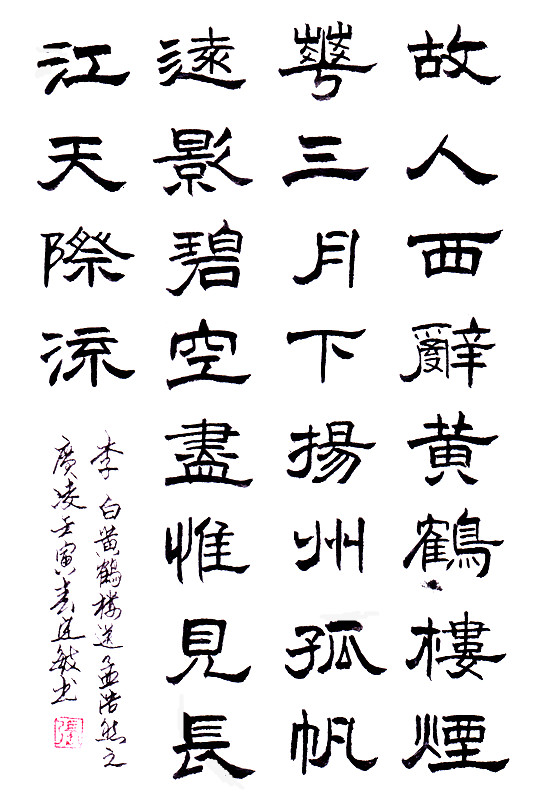 故人西辭黄鶴樓煙
華三月下揚州孤帆
遠影碧空盡惟見長
江天際流
李白黄鶴楼送孟浩然之
廣凌壬寅春敏书